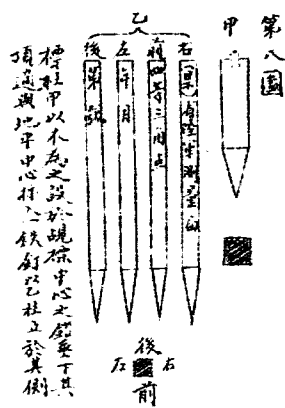 第八圖
甲
乙
右 日凡 自陸軍測量部
前 四等三角点
左 年月
後 第 號
後
右
左
前
標柱甲以木為之設於覘標中心之錯垂下其
頂適與地平中心採入鉄釘以乙柱立於其側